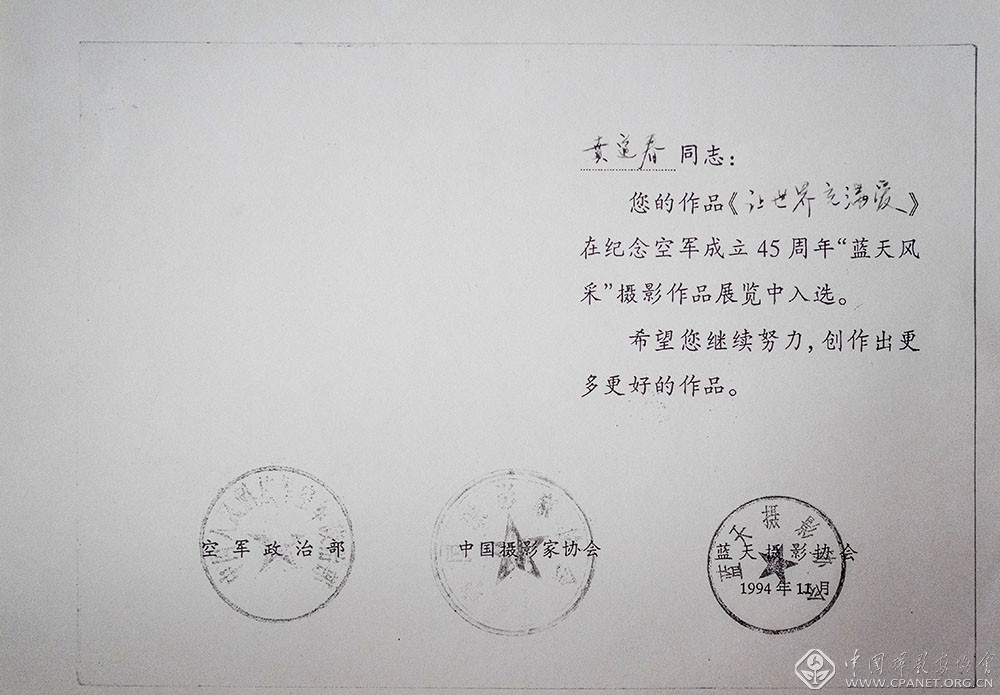 贲道春同志：
您的作品《让世界充满爱》
在纪念空军成立45周年“蓝天风
采”摄影作品展览中入选。
希望您继续努力，创作出更
多更好的作品。
空军政治部
中国摄影家协会
蓝天摄影协会
1994年11月
中国摄影家协会
WWW.CPANET.ORG.CN